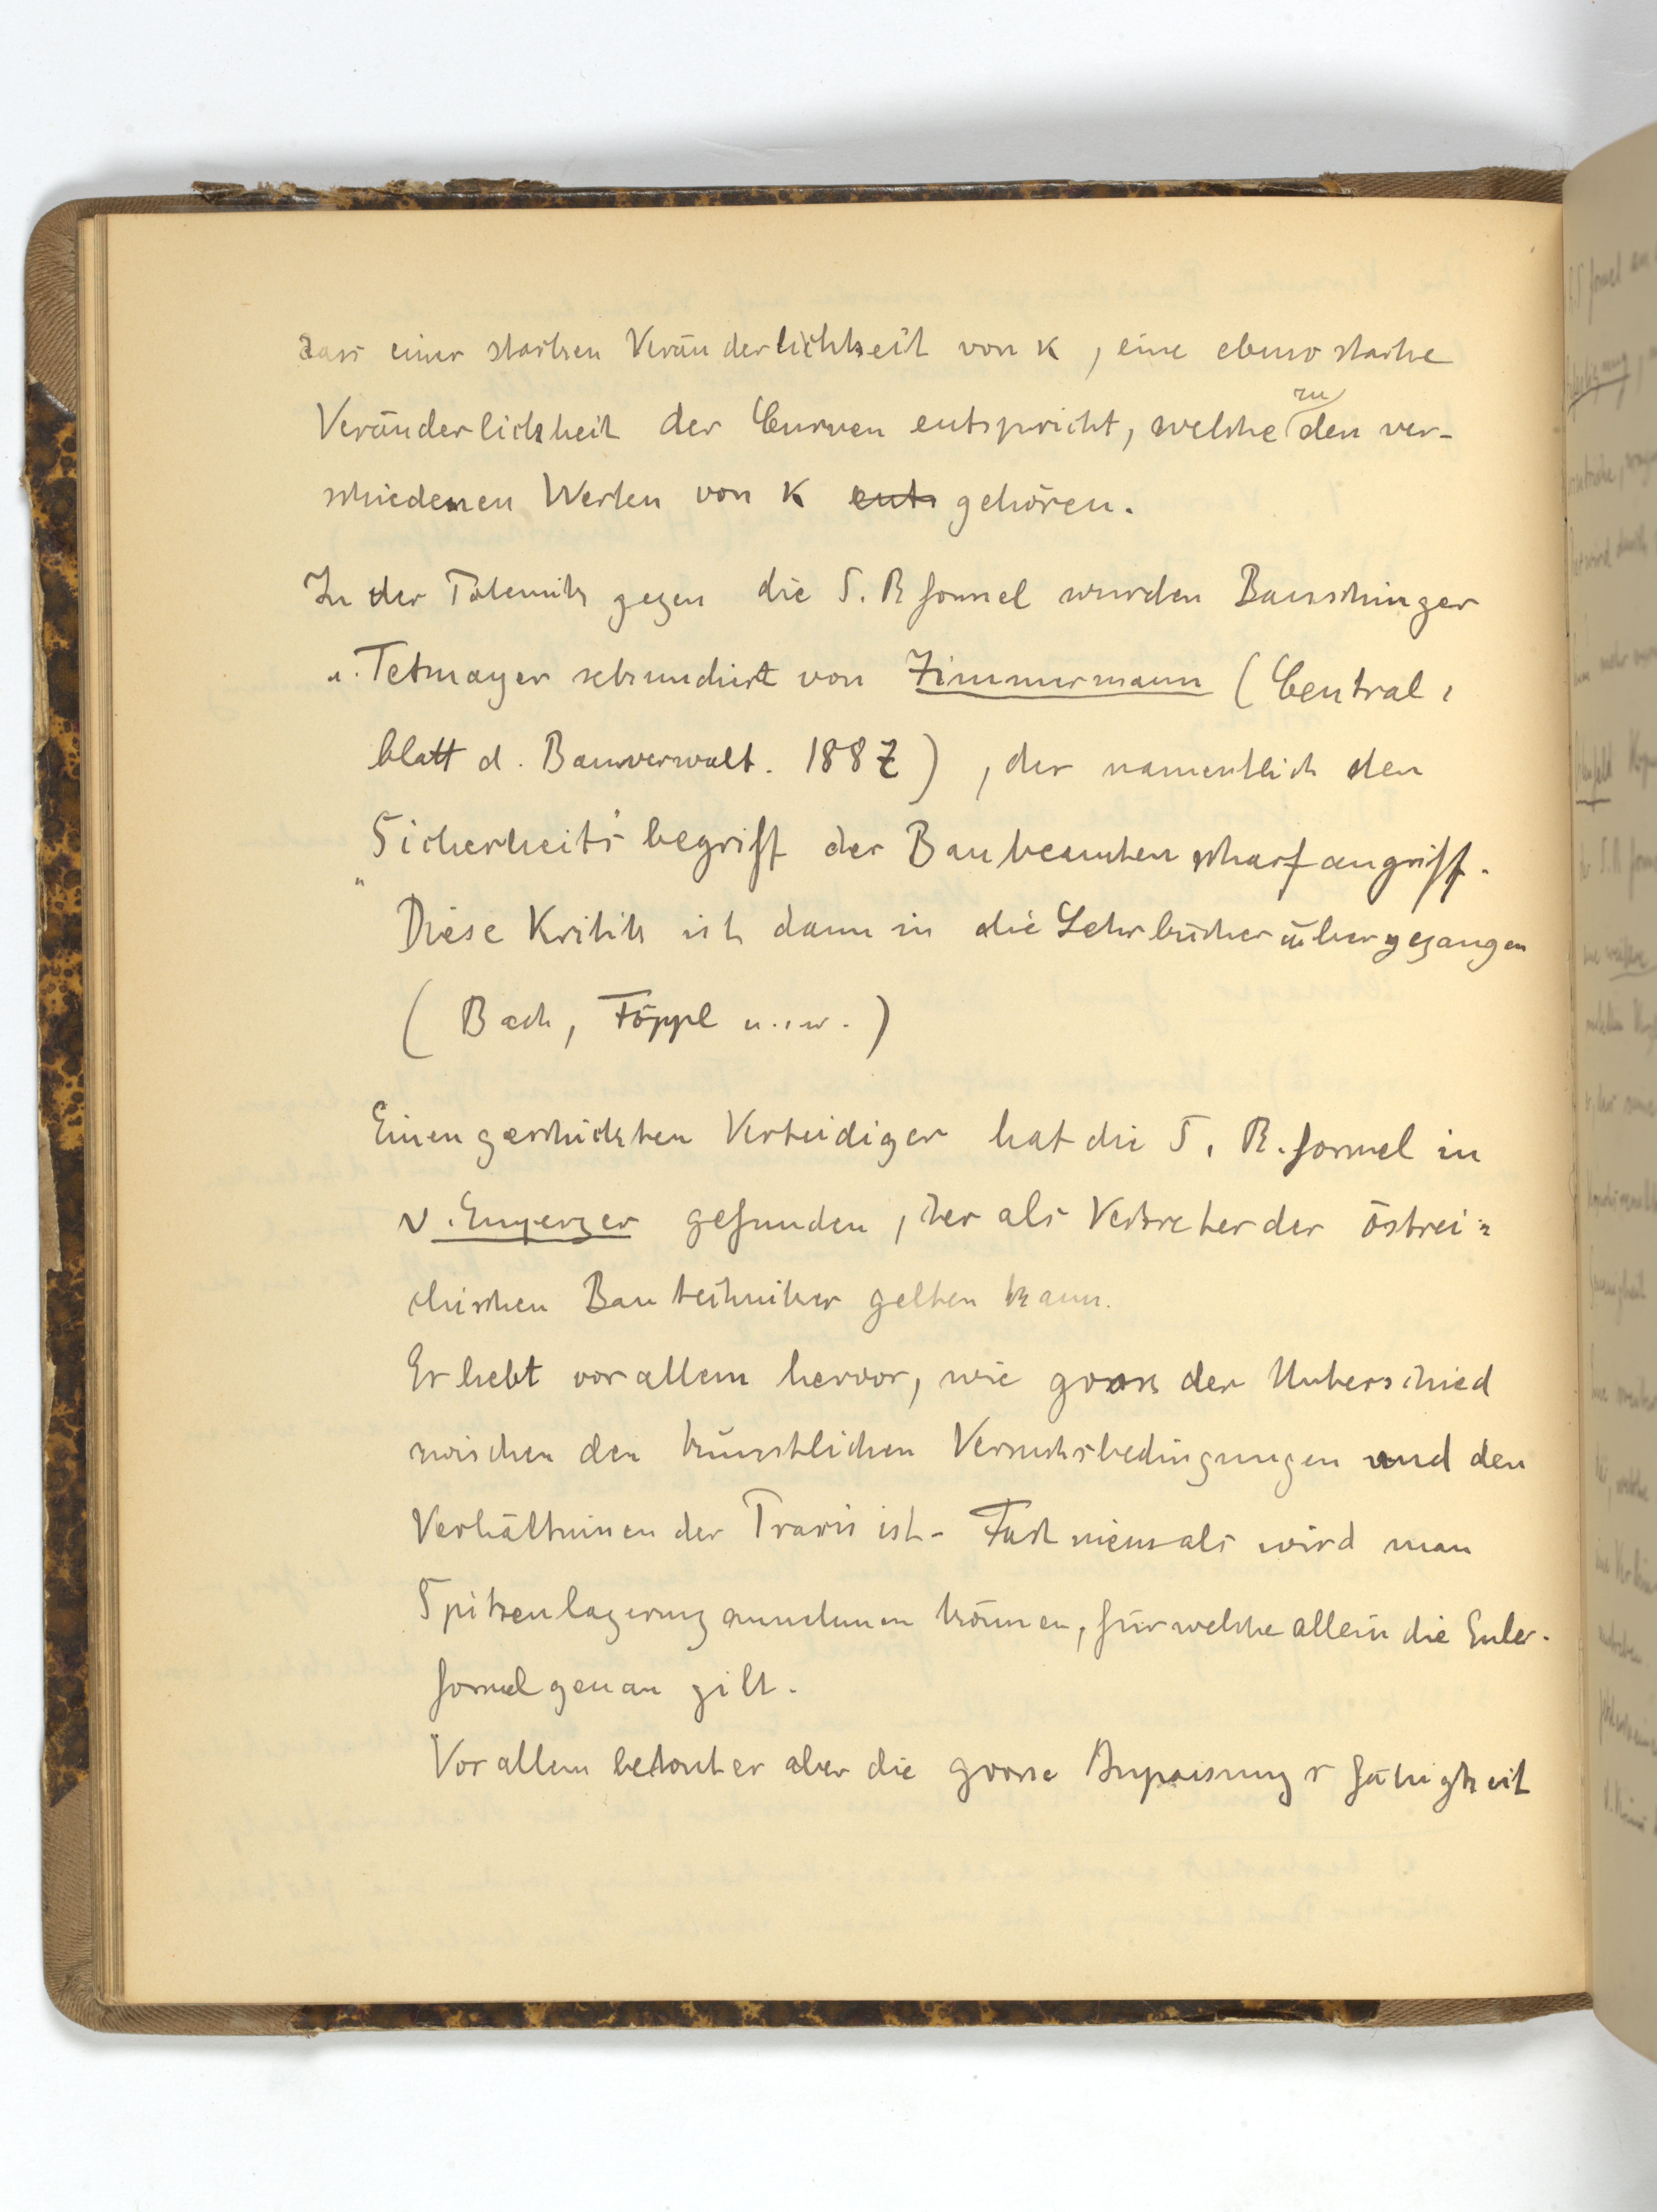 dass einer starken Veränderlichkeit von K, eine ebenso starke
Veränderlichkeit der Curven entspricht, welche zu den ver-
schiedenen Werten von K ents gehören.
In der Polemik gegen die S. R formel wurden Bauschinger
u. Tetmayer sekundirt von Zimmermann (Central-
blatt d. Bauverwalt. 1887), der namentlich den
"Sicherheits"begriff der Baubeamten scharf angriff.
Diese Kritik ist dann in die Lehrbücher übergegangen
(Bach, Föppl u.s.w.)
Einen geschickten Verteidiger hat die S. R. formel in
v. Emperger gefunden, der als Vertreter der östrei-
chischen Bautechniker gelten kann.
Er hebt vor allem hervor, wie gross der Unterschied
zwischen den künstlichen Versuchsbedingungen und den
Verhältnissen der Praxis ist. Fast niemals wird man
Spitzenlagerung annehmen können, für welche allein die Euler-
formel genau gilt.
Vor allem betont er aber die grosse Anpassungsfähigkeit